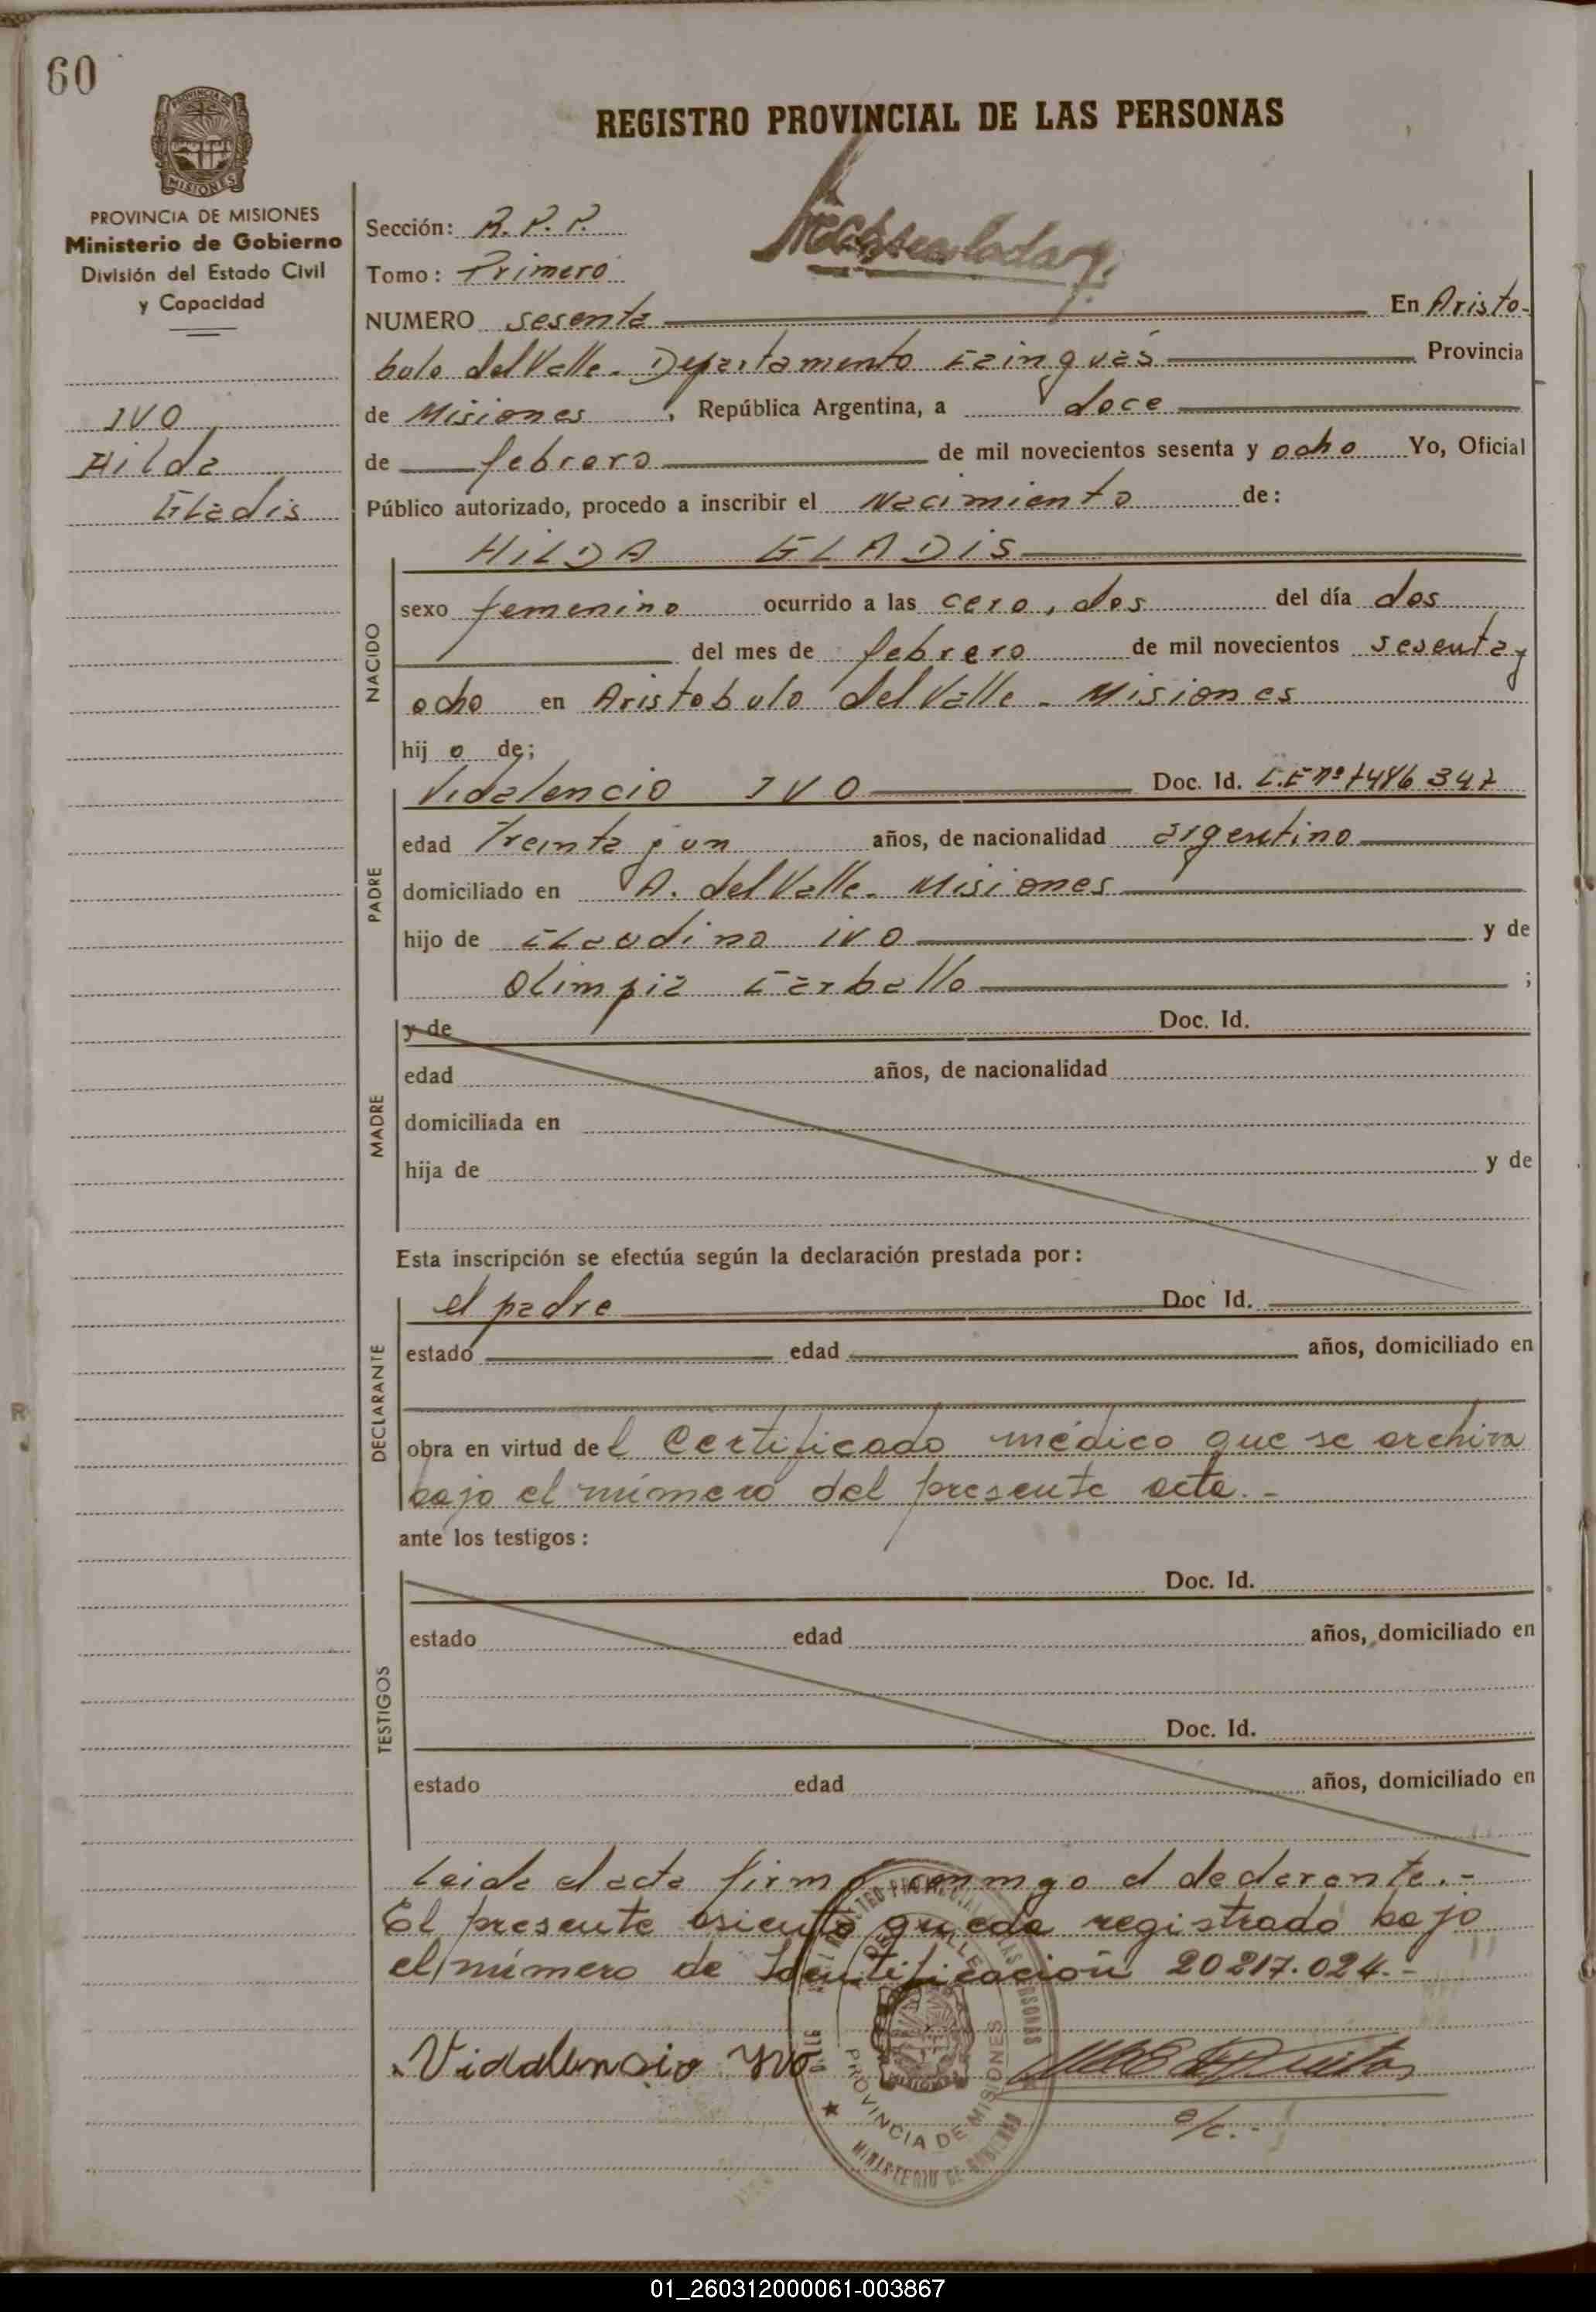 60
PROVINCIA DE
MISIONES
PROVINCIA DE MISIONES
Ministerio de Gobierno
División del Estado Civil
y Capacidad
IVO
Hilda
Gladis
REGISTRO PROVINCIAL DE LAS PERSONAS
Sección: R.P.P.
Tomo: Primero
NUMERO sesenta En Aristo-
bulo del Valle. Departamento Cainguás Provincia
de Misiones, República Argentina, a doce
de febrero de mil novecientos sesenta y ocho Yo, Oficial
Público autorizado, procedo a inscribir el Nacimiento de:
NACIDO
HILDA GLADIS
sexo femenino ocurrido a las cero, dos del día dos
del mes de febrero de mil novecientos sesenta y
ocho en Aristobulo del Valle - Misiones
hijo de;
PADRE
Vidalencio IVO Doc. Id. L.E nº 7486 347
edad Treinta y un años, de nacionalidad argentino
domiciliado en A. del Valle - Misiones
hijo de Claudino IVO y de
Olimpia Carballo ;
MADRE
y de Doc. Id.
edad años, de nacionalidad
domiciliada en
hija de y de
Esta inscripción se efectúa según la declaración prestada por:
DECLARANTE
el padre Doc Id.
estado edad años, domiciliado en
obra en virtud del Certificado médico que se archiva
bajo el número del presente acta.-
ante los testigos:
TESTIGOS
Doc. Id.
estado edad años, domiciliado en
Doc. Id.
estado edad años, domiciliado en
Leida el acta firma conmgo el declarante.-
El presente asiento queda registrado bajo
el número de Identificación 20217.024.-
PROVINCIA DE MISIONES
MINISTERIO DE GOBIERNO
Vidalencio Yvo
01_260312000061-003867